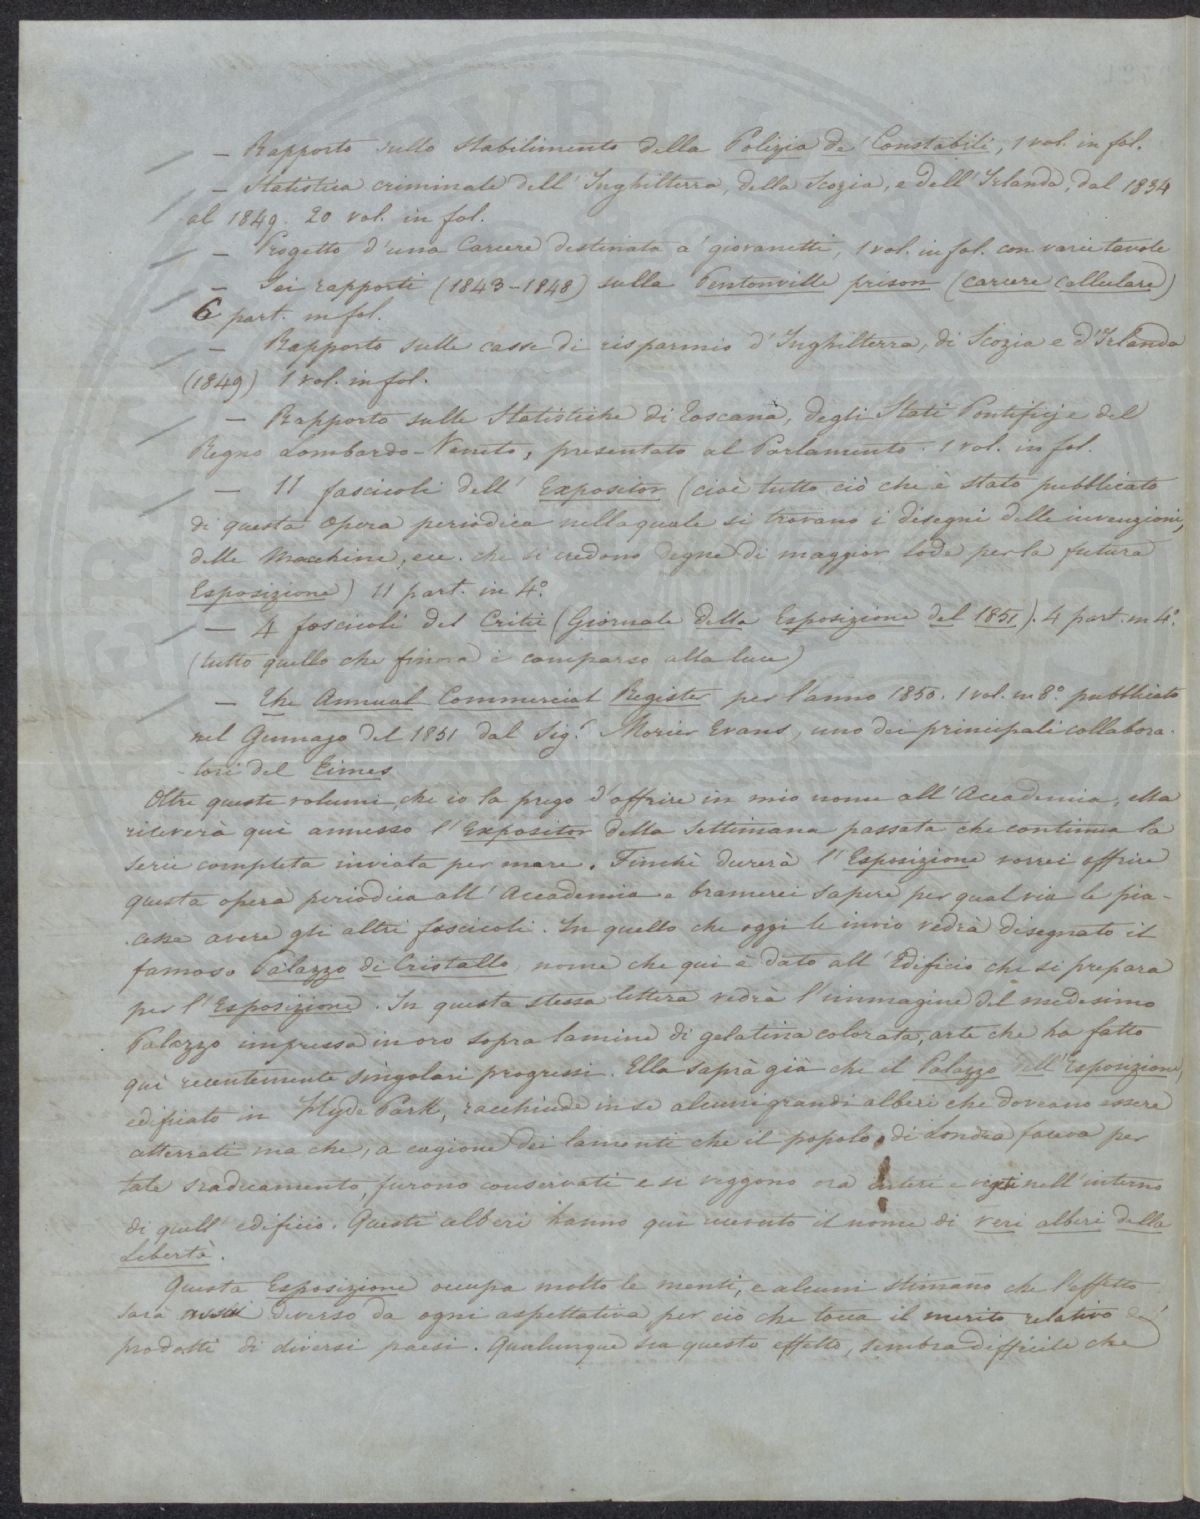 — Rapporto sullo stabilimento della Polizia de' Constabili, 1 vol. in fol.
— Statistica criminale dell' Inghilterra, della Scozia, e dell' Irlanda, dal 1834
al 1849. 20 vol. in fol.
— Progetto d'una Carcere destinata a' giovanetti, 1 vol. in fol. con varie tavole
— Sei rapporti (1843-1848) sulla Pentonville prison (carcere cellulare)
6 part. in fol.
— Rapporto sulle casse di risparmio d'Inghilterra, di Scozia e d'Irlanda
(1849) 1 vol. in fol.
— Rapporto sulle Statistiche di Toscana, degli Stati Pontificj e del
Regno Lombardo-Veneto, presentato al Parlamento. 1 vol. in fol.
— 11 fascicoli dell' Expositor (cioè tutto ciò che è stato pubblicato
di questa opera periodica nella quale si trovano i disegni delle invenzioni,
delle Macchine, ecc. che si credono degne di maggior lode per la futura
Esposizione) 11 part. in 4.°
— 4 fascicoli del Critic (Giornale della Esposizione del 1851). 4 part. in 4.°
(tutto quello che finora è comparso alla luce)
— The Annual Commercial Register per l'anno 1850. 1 vol. in 8.° pubblicato
nel Gennajo del 1851 dal Sig.r Morier Evans, uno dei principali collabora-
tori del Times
Oltre questi volumi che io la prego d'offrire in mio nome all' Accademia, ella
riceverà quì annesso l'Expositor della settimana passata che continua la
serie completa inviata per mare. Finchè durerà l'Esposizione vorrei offrire
questa opera periodica all' Accademia e bramerei sapere per qual via le pia-
cesse avere gli altri fascicoli. In quello che oggi le invio vedrà disegnato il
famoso Palazzo di Cristallo, nome che qui è dato all' Edificio che si prepara
per l'Esposizione. In questa stessa lettera vedrà l'immagine del medesimo
Palazzo impressa in oro sopra lamine di gelatina colorata, arte che ha fatto
quì recentemente singolari progressi. Ella saprà già che il Palazzo dell'Esposizione,
edificato in Hyde Park, racchiude in se alcuni grandi alberi che doveano essere
atterrati ma che, a cagione dei lamenti che il popolo di Londra faceva per
tale sradicamento, furono conservati e si veggono ora interi e vegeti nell'interno
di quell' edificio. Questi alberi hanno quì ricevuto il nome di veri alberi della
Libertà.
Questa Esposizione occupa molto le menti, e alcuni stimano che l'effetto
sarà assai diverso da ogni aspettativa per ciò che tocca il merito relativo de'
prodotti di diversi paesi. Qualunque sia questo effetto, sembra difficile che